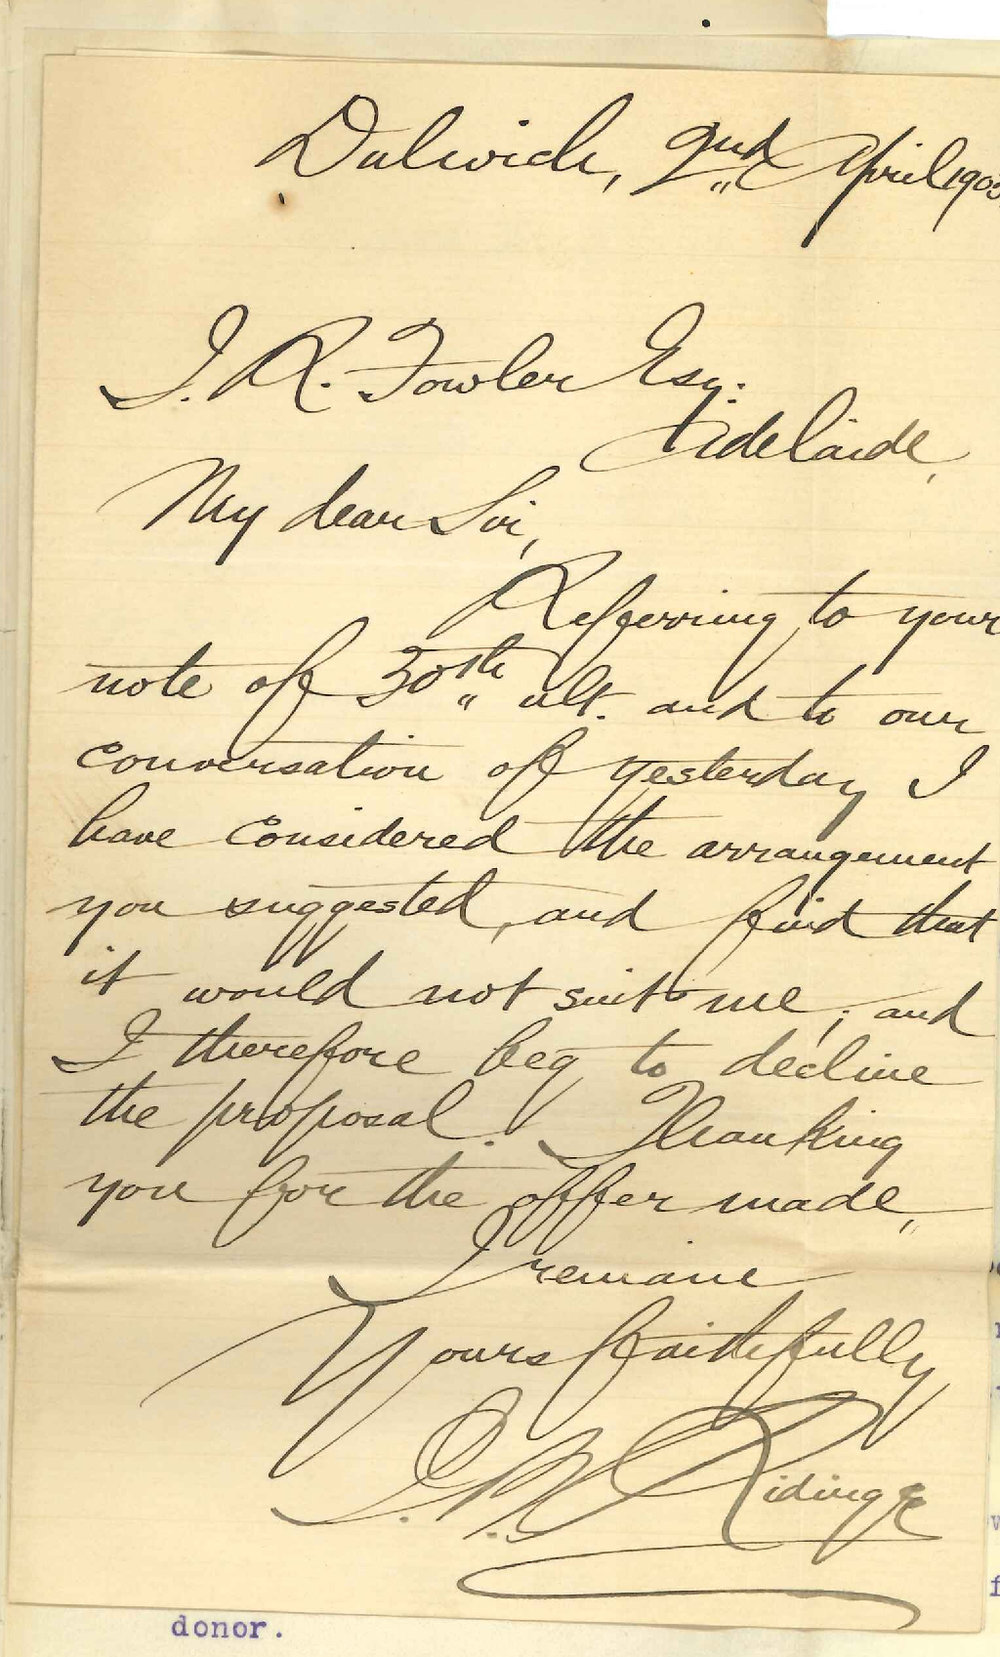 Dulwich, 2nd April 1903
J. R. Fowler Esq:
Adelaide,
My dear Sir,
Referring to your
note of 30th ult. and to our
conversation of yesterday I
have considered the arrangement
you suggested, and find that
it would not suit me; and
I therefore beg to decline
the proposal. Thanking
you for the offer made,
I remain
Yours faithfully
Riding
donor.